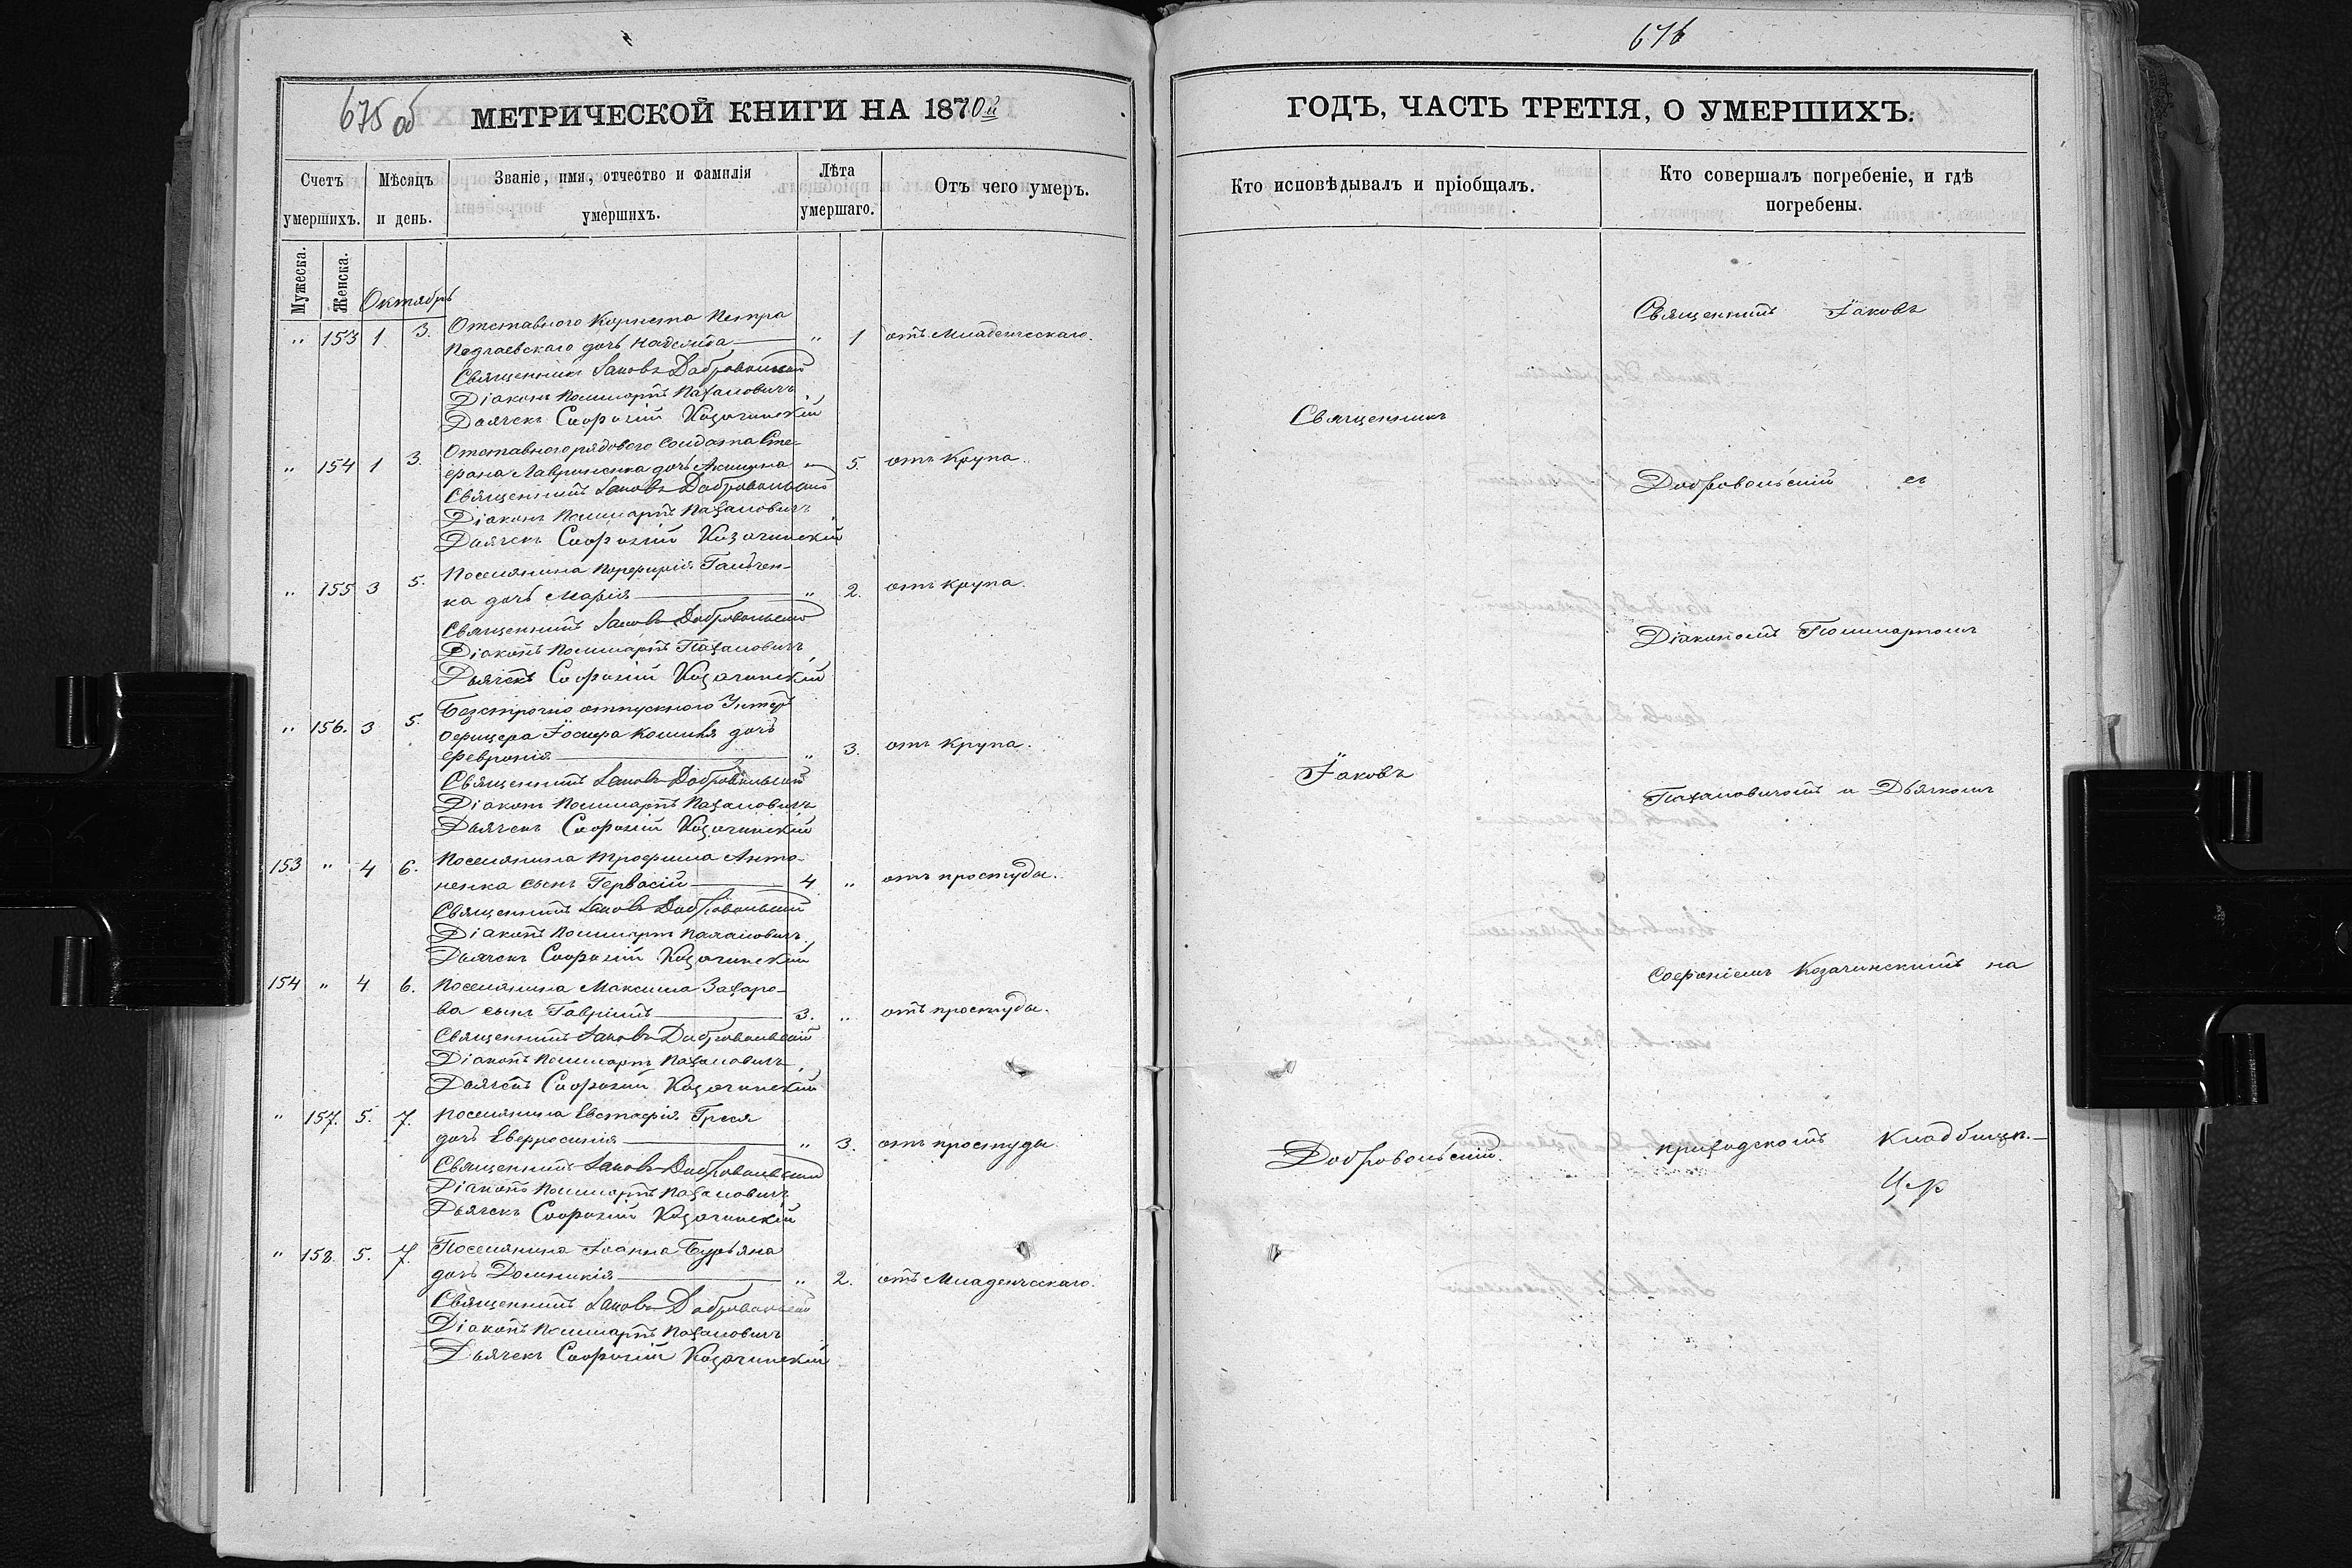 675 об
МЕТРИЧЕСКОЙ КНИГИ НА 1870й
Счетъ умершихъ.
Мѣсяцъ и день.
Званіе, имя, отчество и фамилія умершихъ.
Лѣта умершаго.
Отъ чего умеръ.
Мужеска.
Женска.
Октябрь
" 153 1 3. Отставного Корнета Петра
Подгаевскаго дочь Надежда " 1 отъ Младенческаго.
Священникъ Іаковъ Добровольскій
Діаконъ Поликарпъ Пахаловичъ
Дьячекъ Софроній Козачинскій
" 154 1 3. Отставного рядового Солдата Сте-
фана Лавриненка дочь Акилина " 5. отъ Крупа.
Священникъ Іаковъ Добровольскій
Діаконъ Поликарпъ Пахаловичъ
Дьячекъ Софроній Козачинскій
" 155 3 5. Поселянина Порфирія Гальчен-
ка дочь Марія " 2. отъ крупа.
Священникъ Іаковъ Добровольскій
Діаконъ Поликарпъ Пахаловичъ
Дьячекъ Софроній Козачинскій
" 156. 3 5. Безсрочно отпускного Унтеръ
Офицера Іосифа дочь
Февронія " 3. отъ Крупа.
Священникъ Іаковъ Добровольскій
Діаконъ Поликарпъ Пахаловичъ
Дьячекъ Софроній Козачинскій
153 " 4 6. Поселянина Трофима Анто-
ненка сынъ Гервасій 4 " отъ простуды.
Священникъ Іаковъ Добровольскій
Діаконъ Поликарпъ Пахаловичъ
Дьячекъ Софроній Козачинскій
154 " 4 6. Поселянина Максима Захаро-
ва сынъ Гавріилъ 3. " отъ простуды.
Священникъ Іаковъ Добровольскій
Діаконъ Поликарпъ Пахаловичъ
Дьячекъ Софроній Козачинскій
" 157. 5. 7. Поселянина Евстафія
дочь Евфросинія " 3. отъ простуды.
Священникъ Іаковъ Добровольскій
Діаконъ Поликарпъ Пахаловичъ
Дьячекъ Софроній Козачинскій
" 158. 5. 7. Поселянина Іоанна Бурьяна
дочь Домникія " 2. отъ Младенческаго.
Священникъ Іаковъ Добровольскій
Діаконъ Поликарпъ Пахаловичъ
Дьячекъ Софроній Козачинскій
676
ГОДЪ, ЧАСТЬ ТРЕТІЯ, О УМЕРШИХЪ.
Кто исповѣдывалъ и пріобщалъ.
Кто совершалъ погребеніе, и гдѣ
погребены.
Священникъ
Іаковъ
Добровольскій.
Священникъ Іаковъ
Добровольскій съ
Діакономъ Поликарпомъ
Пахаловичомъ и Дьячкомъ
Софроніемъ Козачинскимъ на
приходскомъ Кладбищѣ.